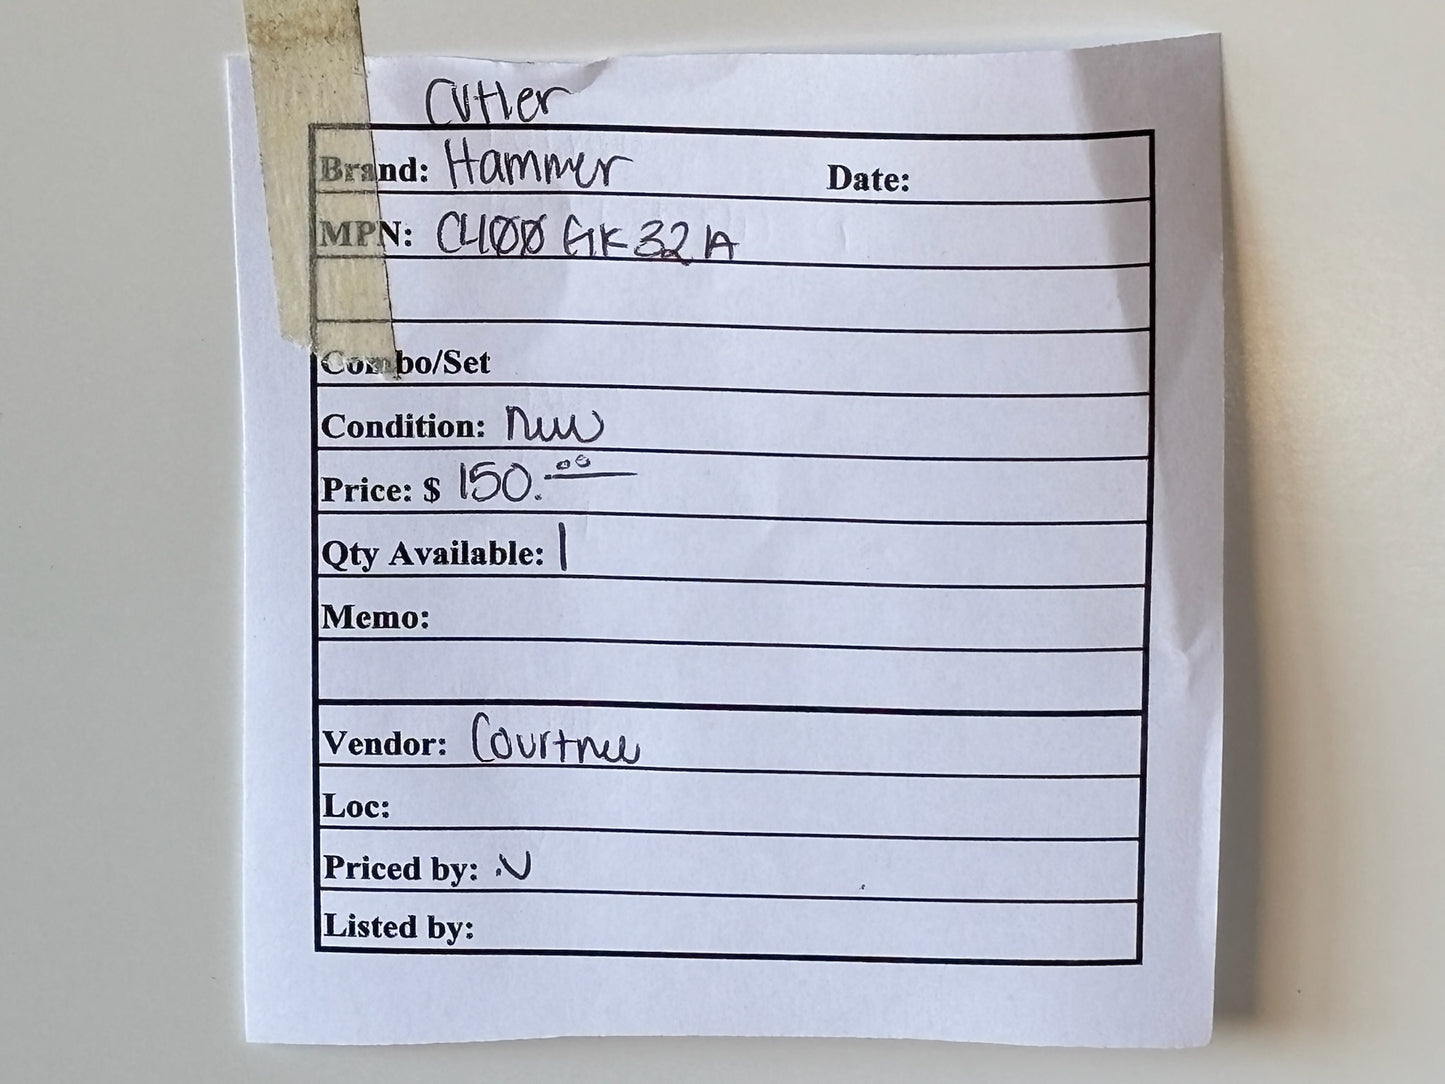 Cutler
Brand: Hammer Date:
MPN: C400GK32A
Combo/Set
Condition: new
Price: $ 150.00
Qty Available: 1
Memo:
Vendor: Courtnee
Loc:
Priced by: N
Listed by: